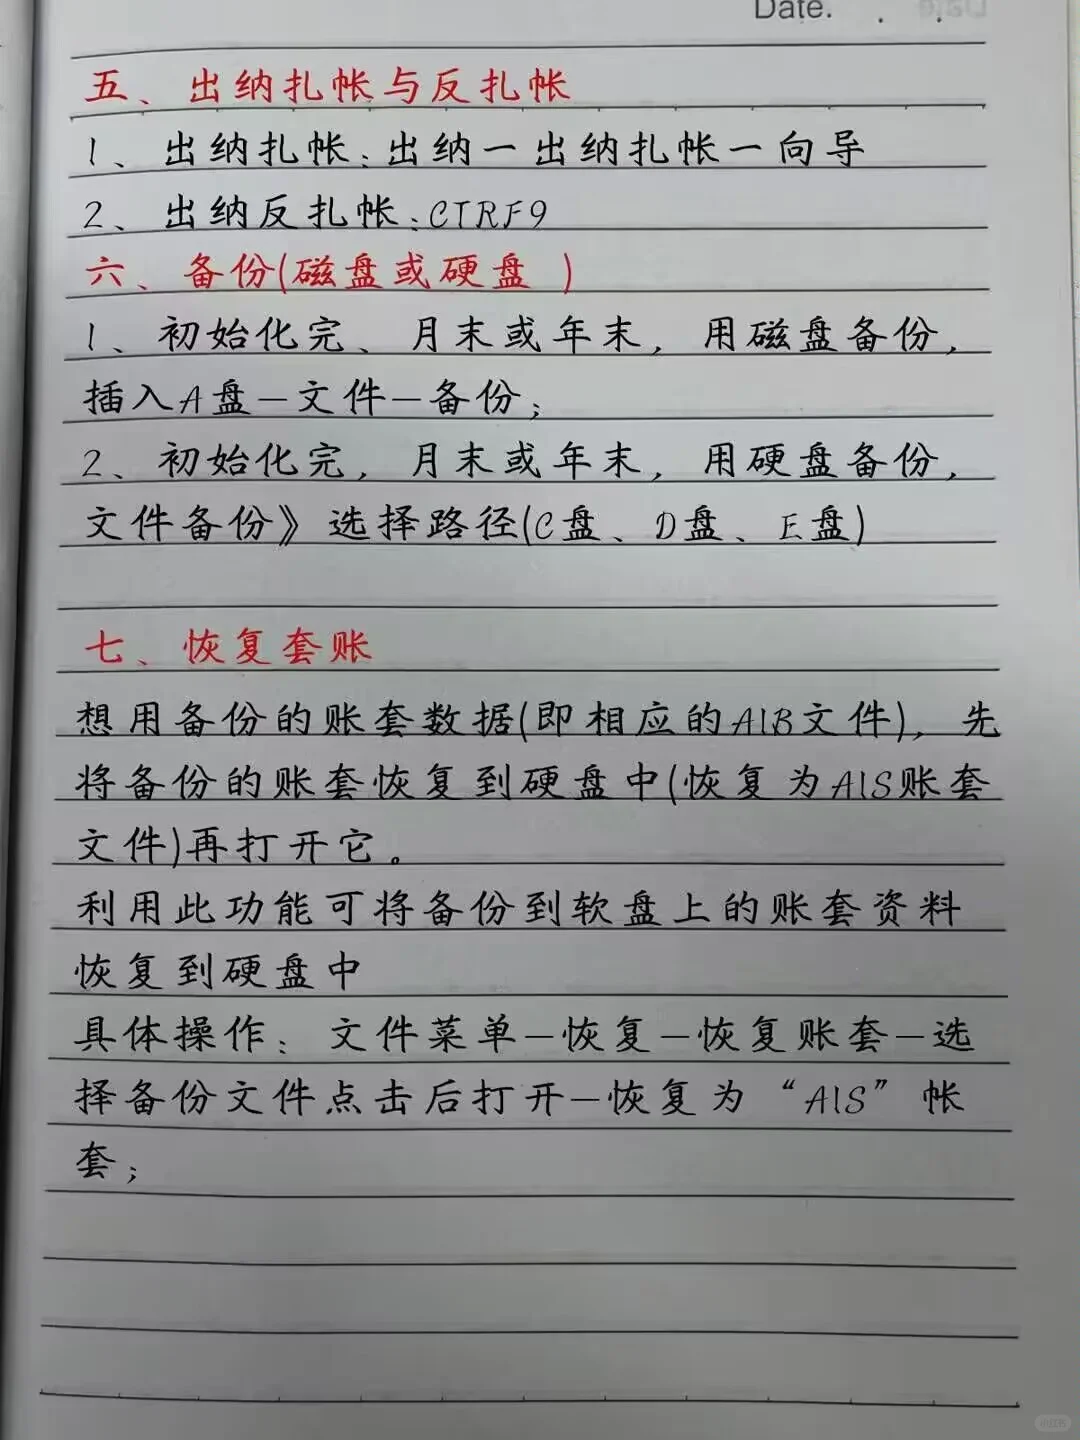 Date.
五、出纳扎帐与反扎帐
1、出纳扎帐:出纳一出纳扎帐一向导
2、出纳反扎帐:CTRF9
六、备份(磁盘或硬盘 )
1、初始化完、月末或年末，用磁盘备份，
插入A盘—文件—备份；
2、初始化完，月末或年末，用硬盘备份，
文件备份》选择路径(C盘、D盘、E盘)
七、恢复套账
想用备份的账套数据(即相应的AIB文件)，先
将备份的账套恢复到硬盘中(恢复为AIS账套
文件)再打开它。
利用此功能可将备份到软盘上的账套资料
恢复到硬盘中
具体操作：文件菜单—恢复—恢复账套—选
择备份文件点击后打开—恢复为“AIS”帐
套；
小红书